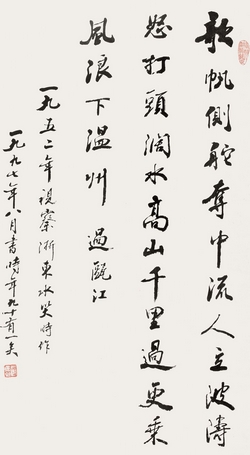 歌帆側舵奪中流人立波濤
怒打頭闊水高山千里過更乘
風浪下溫州 過甌江
一九五二年視察浙東水災時作
一九九七年八月書時年九十有一矣